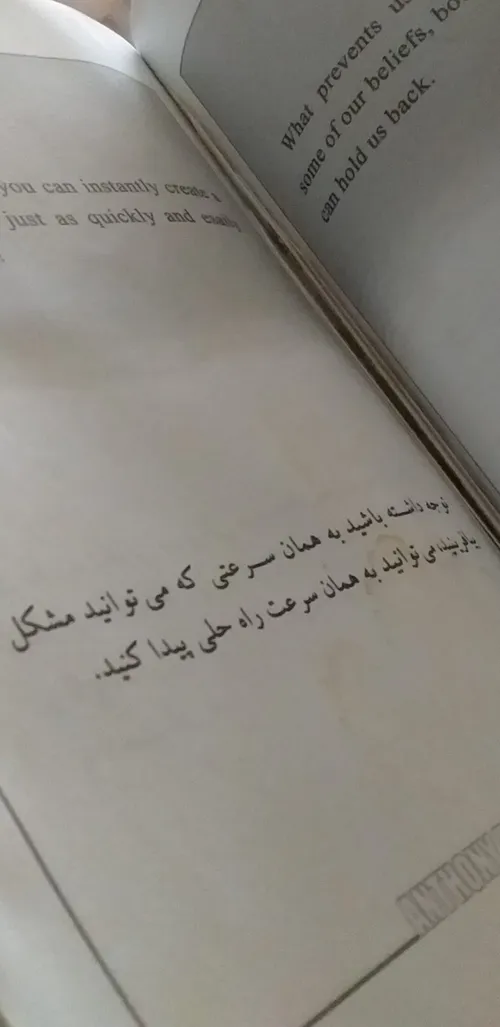 you can instantly create a
just as quickly and easily
توجه داشته باشید به همان سرعتی که می توانید مشکل
بیافرینید، می توانید به همان سرعت راه حلی پیدا کنید.
ANTHONY
What prevents us
some of our beliefs, bo
can hold us back.